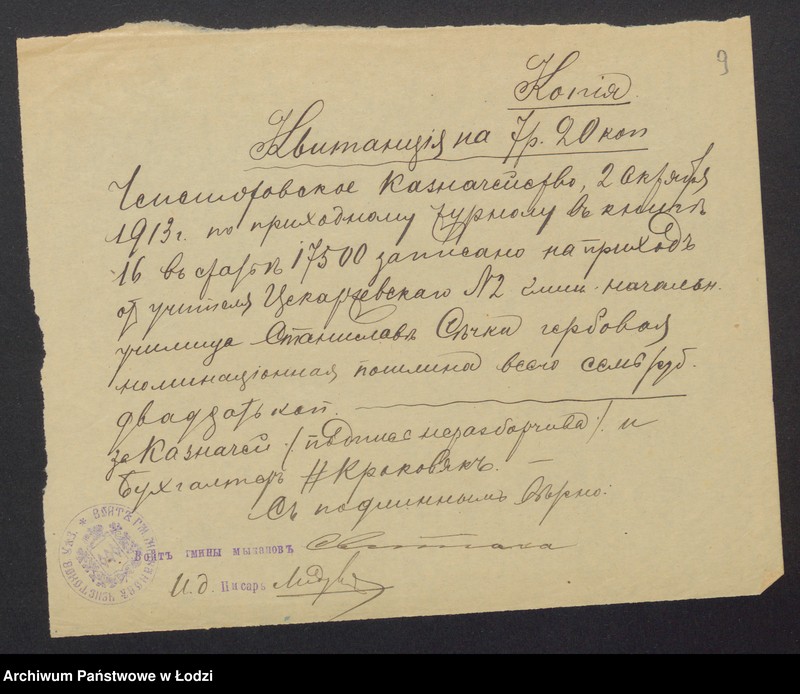 9
Копія
Квитанція на 7р. 20 коп
Ченстоховское казначейство, 2 Октября
1913 г. по приходному журналу въ книгѣ
16 въ статьѣ 17500 записано на приходъ
от учителя № 2 начальн.
училища Станиславъ Сѣчка гербовая
номинаціонная пошлина всего семь руб.
двадцать коп.
за Казначей /подпись неразборчива/ и
Бухгалтеръ Н Краковякъ. –
Съ подлиннымъ вѣрно:
Войтъ гмины мыкановъ
И. д. Писарь
Archiwum Państwowe w Łodzi